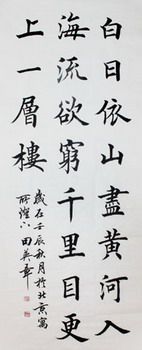 白日依山盡黃河入
海流欲窮千里目更
上一層樓
歲在壬辰秋月於北京寫
田英章